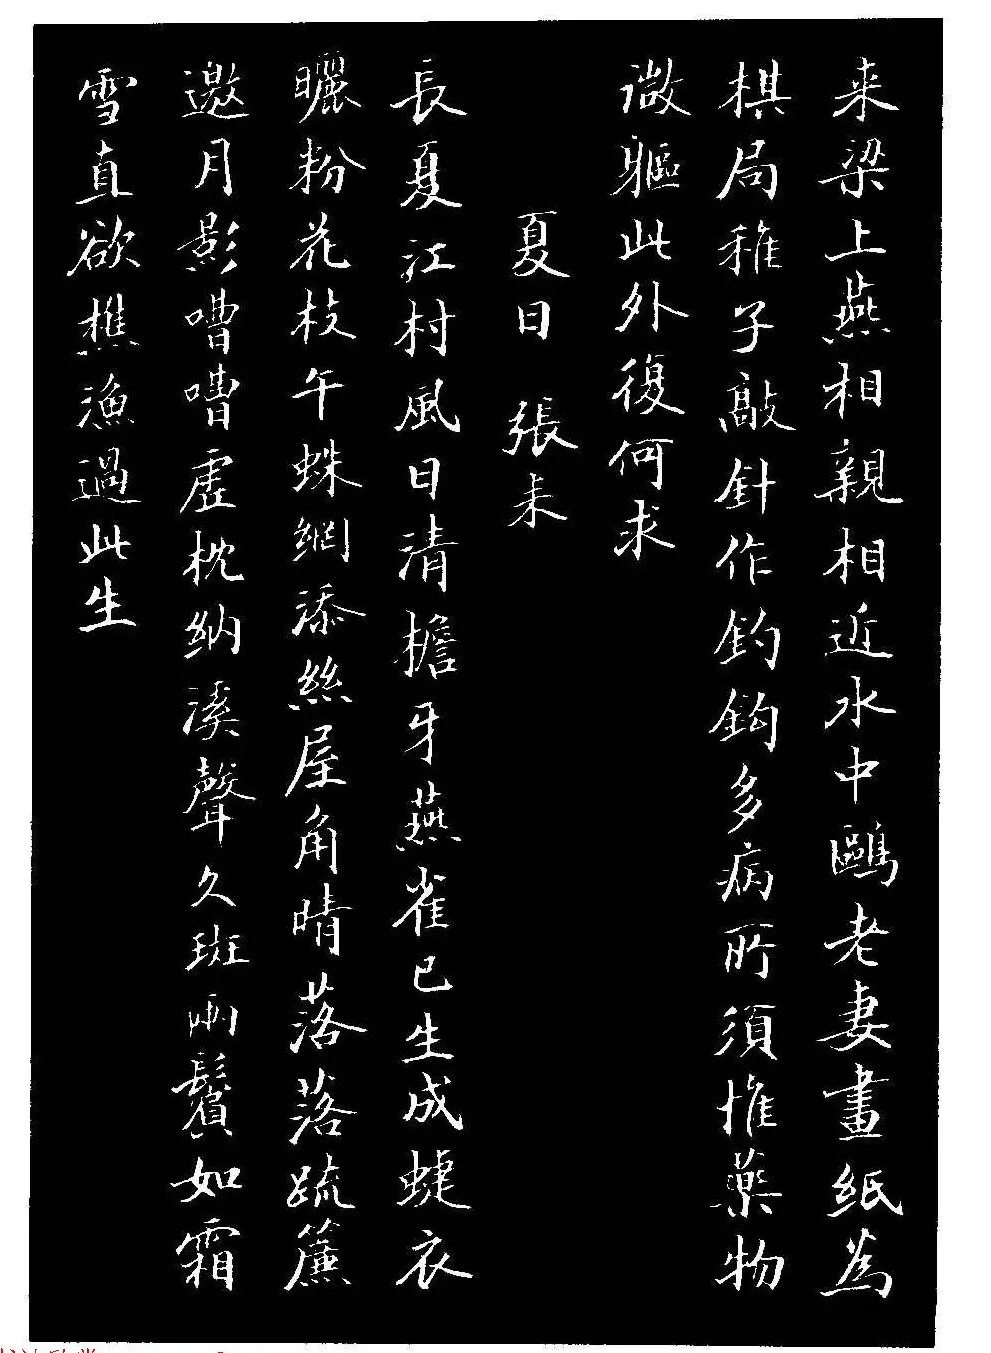 来梁上燕相親相近水中鷗老妻畫紙為
棋局稚子敲針作釣鈎多病所須惟藥物
微軀此外復何求
夏日 張耒
長夏江村風日清檐牙燕雀已生成蜨衣
曬粉花枝午蛛網添絲屋角晴落落疏簾
邀月影嘈嘈虛枕納溪聲久斑兩鬢如霜
雪直欲樵漁過此生